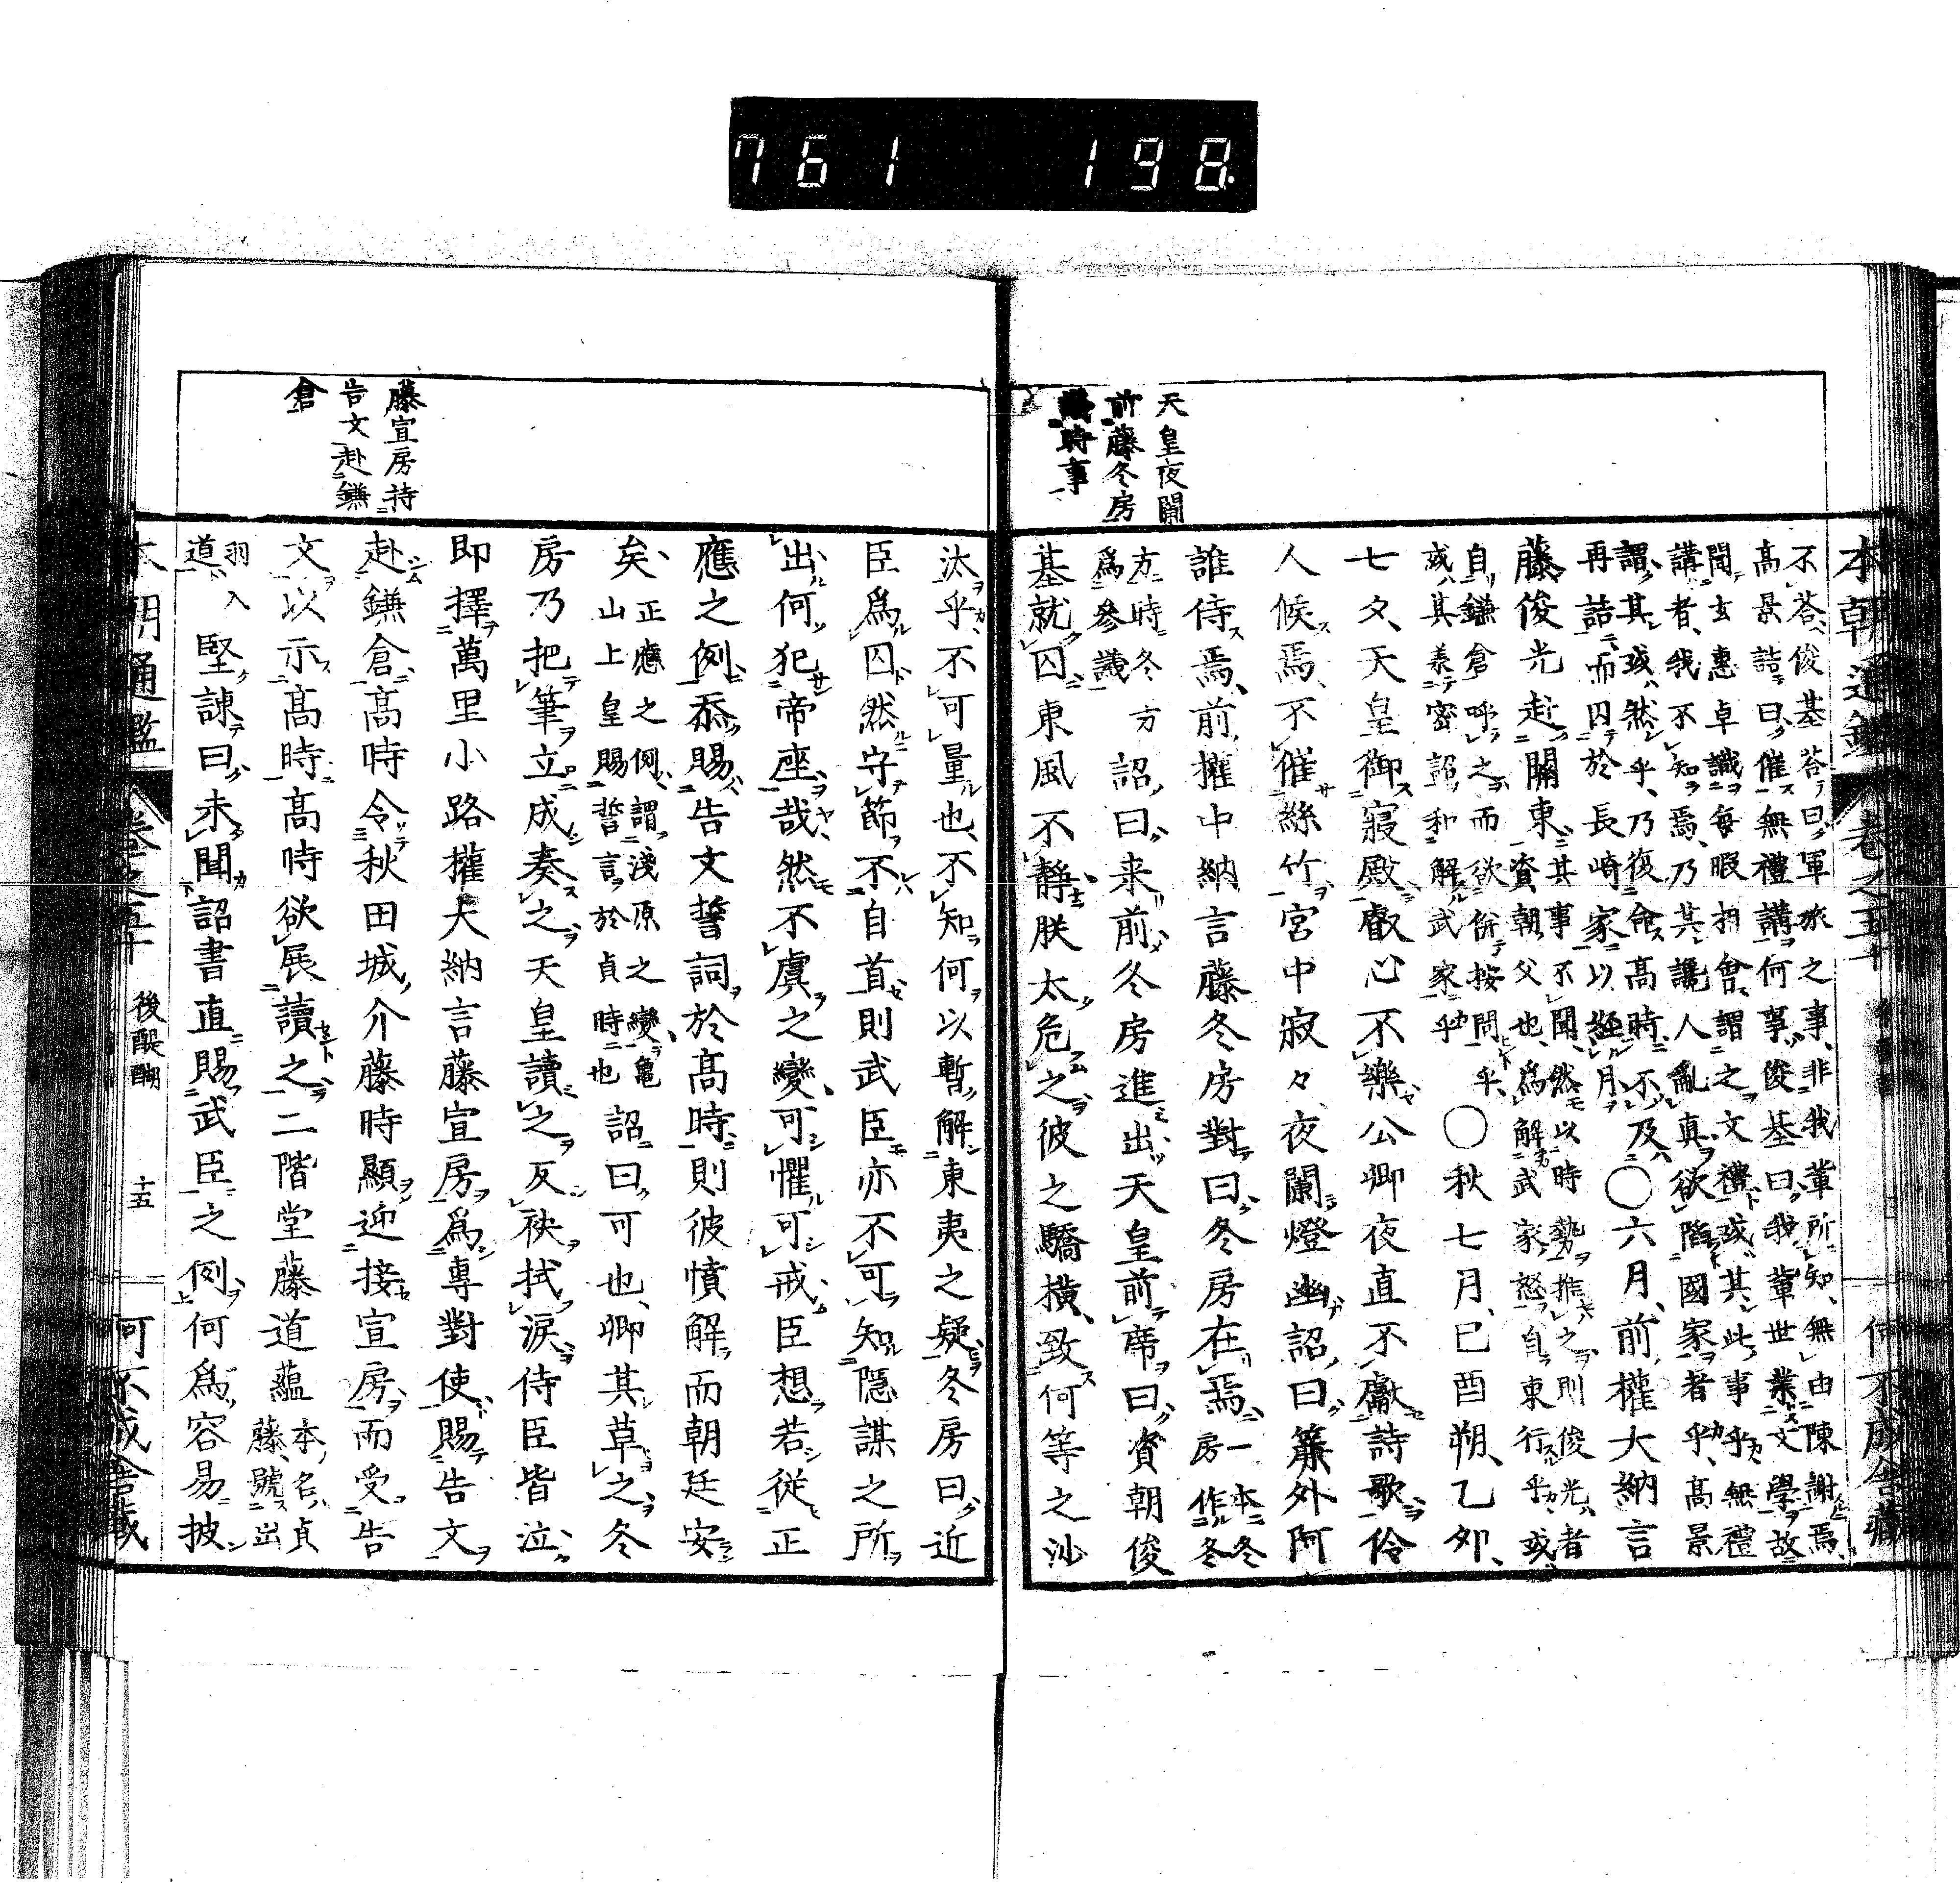 761 198
天皇夜闌
前藤冬房
議時事
本朝通鑑 卷之五十 何不成舎藏
不荅、俊基荅曰、軍旅之事、非我輩所知、無由陳謝焉、
高景詰曰、催無禮講何事、俊基曰、我輩世業文學、故
聞玄惠卓識、每暇招會、謂之文禮、或其此事乎、無禮
講者、我不知焉、乃其讒人亂真、欲陷國家者乎、高景
謂其或然乎、乃復命高時、不及
再詰、而囚於長崎家、以經月、
〇六月、前權大納言
藤俊光赴關東、
其事不聞、然以時勢推之、則俊光者
資朝父也、爲解武家怒自東行乎、或
自鎌倉呼之、而欲併按問乎、
或其奏密詔、和解武家乎
〇秋七月、已酉朔、乙夘、
七夕、天皇御寢殿、叡心不樂、公卿夜直不獻詩歌、伶
人候焉、不催絲竹、宮中寂々夜闌燈幽、詔曰、簾外阿
誰侍焉、前權中納言藤冬房對曰、冬房在焉、
一本冬
房作冬
方時冬方
爲參議
詔曰、来前、冬房進出、天皇前席曰、資朝俊
基就囚、東風不靜、朕太危之、彼之驕横、致何等之沙
汰乎、不可量也、不知何以暫解東夷之疑、冬房曰、近
臣爲囚、然守節不自首、則武臣亦不可知隱謀之所
出、何犯帝座哉、然不虞之變、可懼可戒、臣想若從正
應之例、忝賜告文誓詞於高時、則彼憤解而朝廷安
矣、
正應之例、謂淺原之變、亀
山上皇賜誓言於貞時也
詔曰、可也、卿其草之、冬
房乃把筆立成奏之、天皇讀之、反袂拭淚、侍臣皆泣、
即擇萬里小路權大納言藤宣房、爲專對使、賜告文
赴鎌倉、高時令秋田城介藤時顯迎接宣房、而受告
文以示高時、高時欲展讀之、二階堂藤道蘊
本名貞
藤、號出
羽入
道、
堅諫曰、未聞詔書直賜武臣之例、何爲容易披
藤宣房持
告文赴鎌
倉
本朝通鑑 卷之五十 後醍醐 十五 何不成舎藏